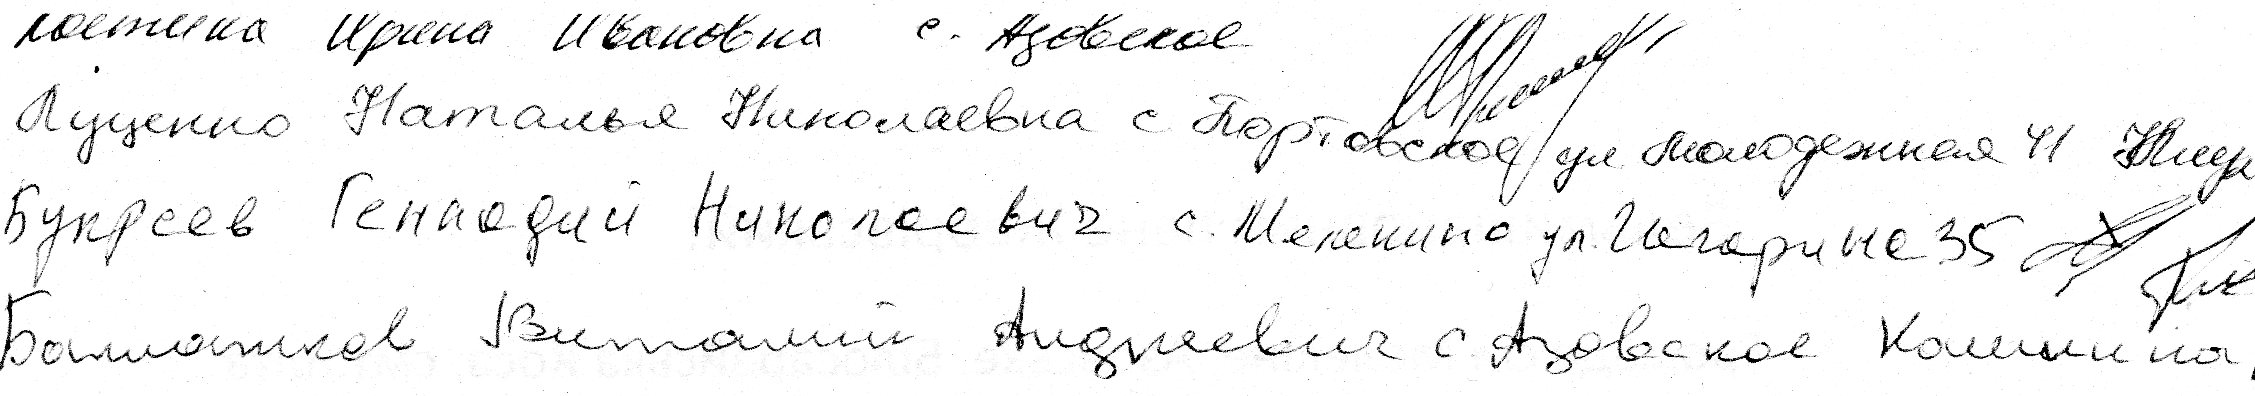 Ирина Ивановна с. Азовское
Луценко Наталья Николаевна с Портовское ул Молодежная 41
Букреев Геннадий Николаевич с. Мелекино ул. Гагарина 35
Виталий Андреевич с. Азовское Калинина,